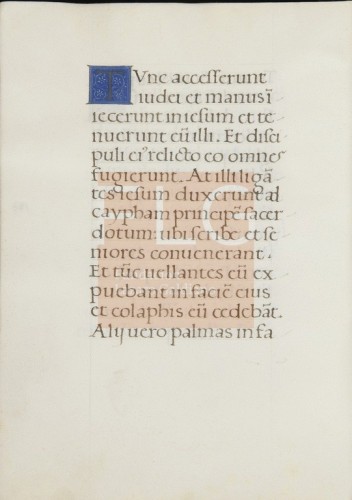 TVnc accesserunt
iudei et manus ī
iecerunt in iesum et te
nuerunt eū illi. Et disci
puli ei⁹ relicto eo omnes
fugierunt. At illi ligā
tes iesum duxerunt ad
caypham principē sacer
dotum: ubi scribe et se
niores conuenerant.
Et tūc uellantes eū ex
puebant in faciē eius
et colaphis eū cedebāt.
Alij uero palmas in fa
FLG